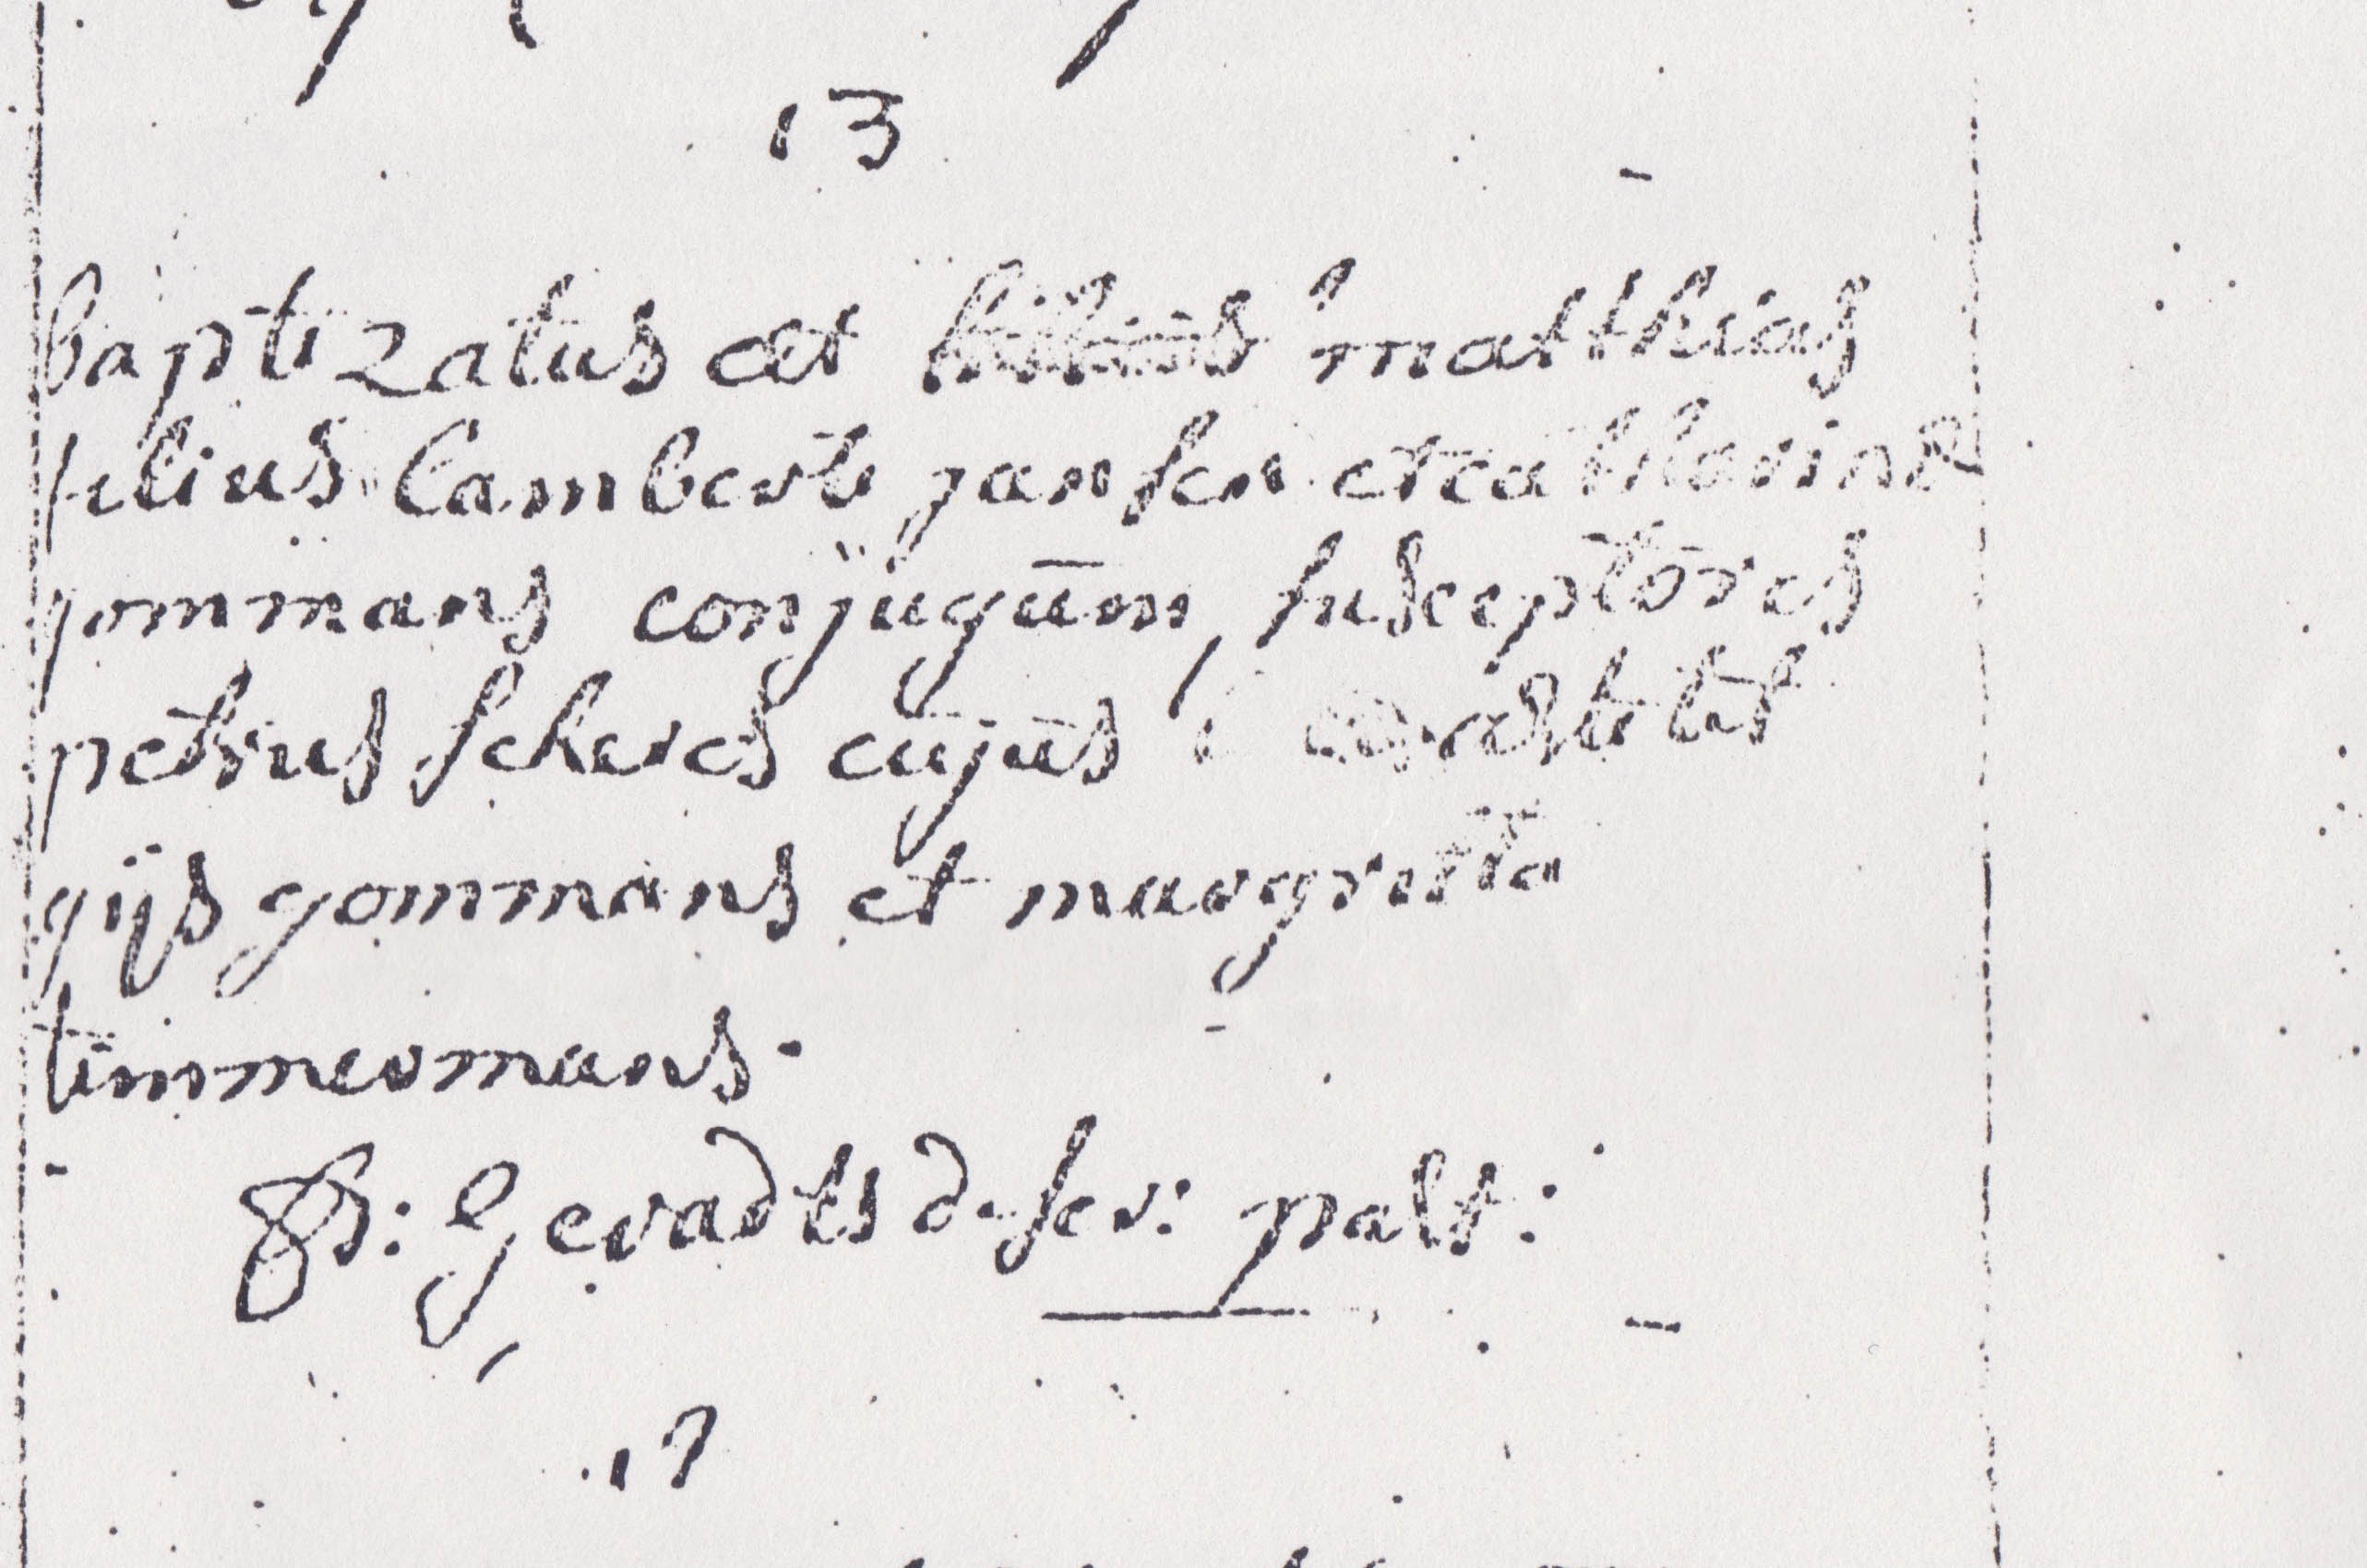 13
baptizatus est matthias
filius Lamberti jansen et catharinae
gommans conjugum, susceptores
petrus scheres cujus
gijs gommans et margritta
timmermans.
Geradts deser: past:
17